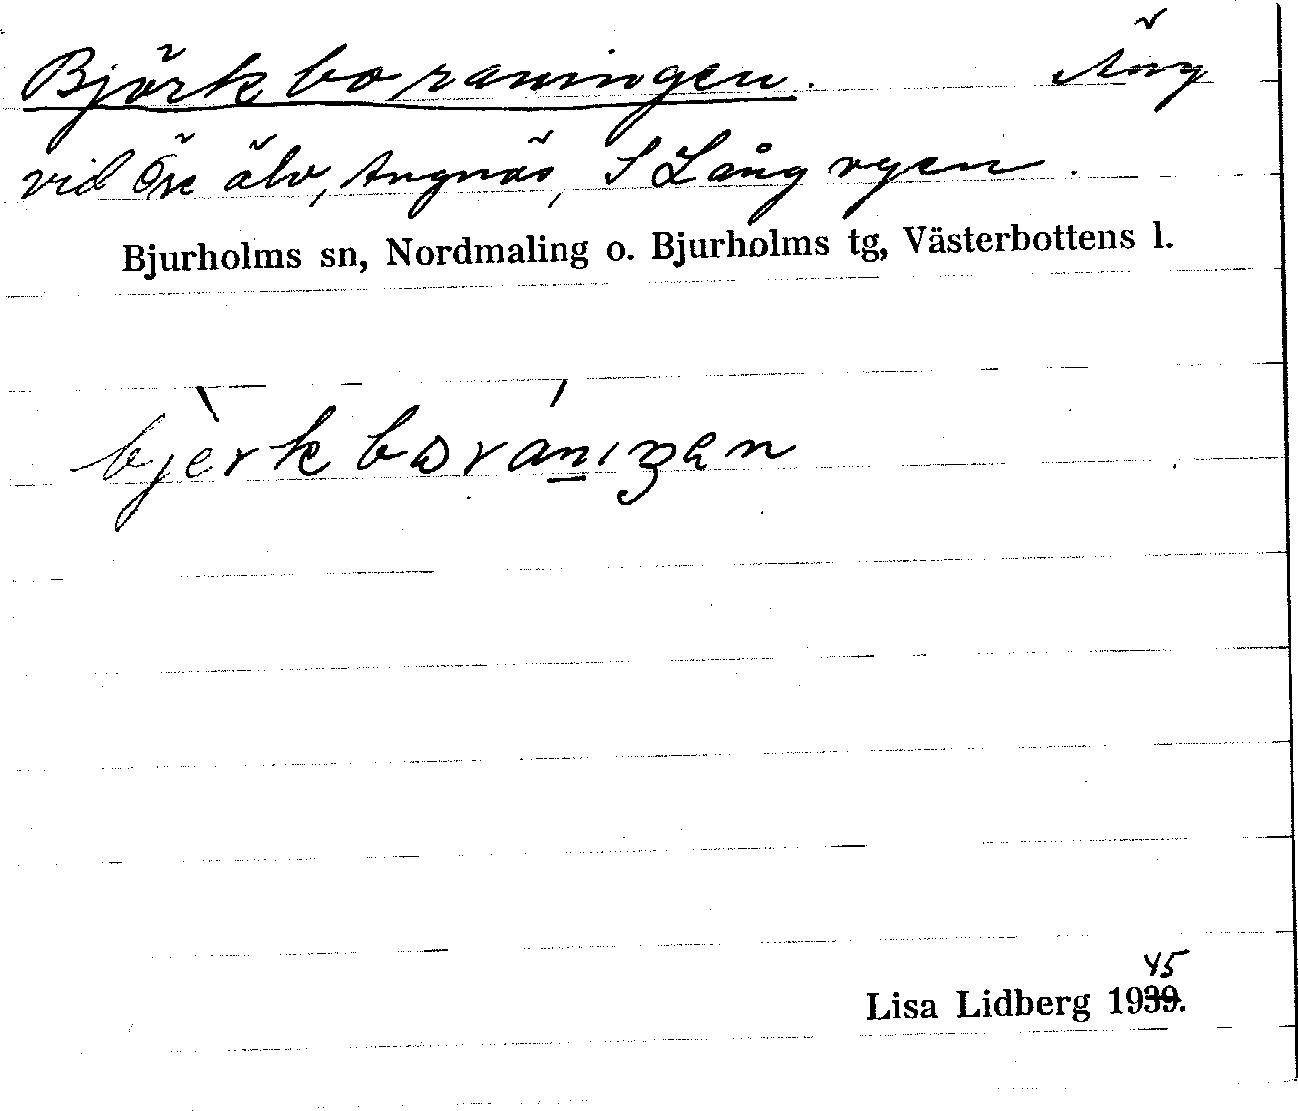 Björkboraningen. Äng
vid Öre älv, Angnäs, S Långrygen.
Bjurholms sn, Nordmaling o. Bjurholms tg, Västerbottens l.
bjèrkboránıŋen
45
Lisa Lidberg 1939.